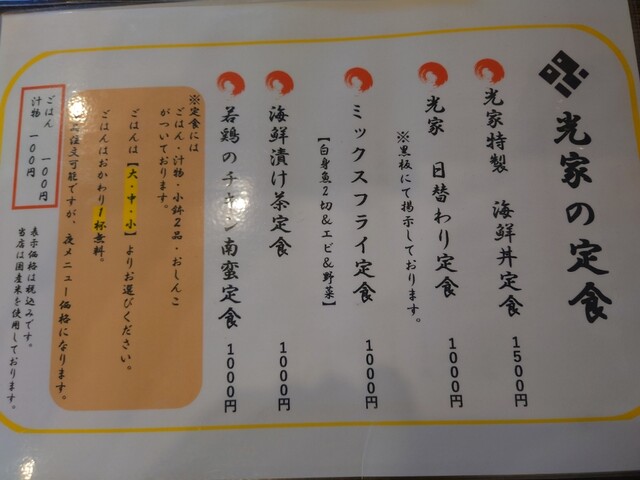 光家の定食
光家特製 海鮮丼定食 1500円
光家 日替わり定食 1000円
※黒板にて掲示しております。
ミックスフライ定食 1000円
【白身魚2切&エビ&野菜】
海鮮漬け茶定食 1000円
若鶏のチキン南蛮定食 1000円
※定食には
ごはん・汁物・小鉢2品・おしんこ
がついております。
ごはんは【大・中・小】よりお選びください。
ごはんはおかわり1杯無料。
注文可能ですが、夜メニュー価格になります。
ごはん 100円
汁物 100円
表示価格は税込みです。
当店は国産米を使用しております。